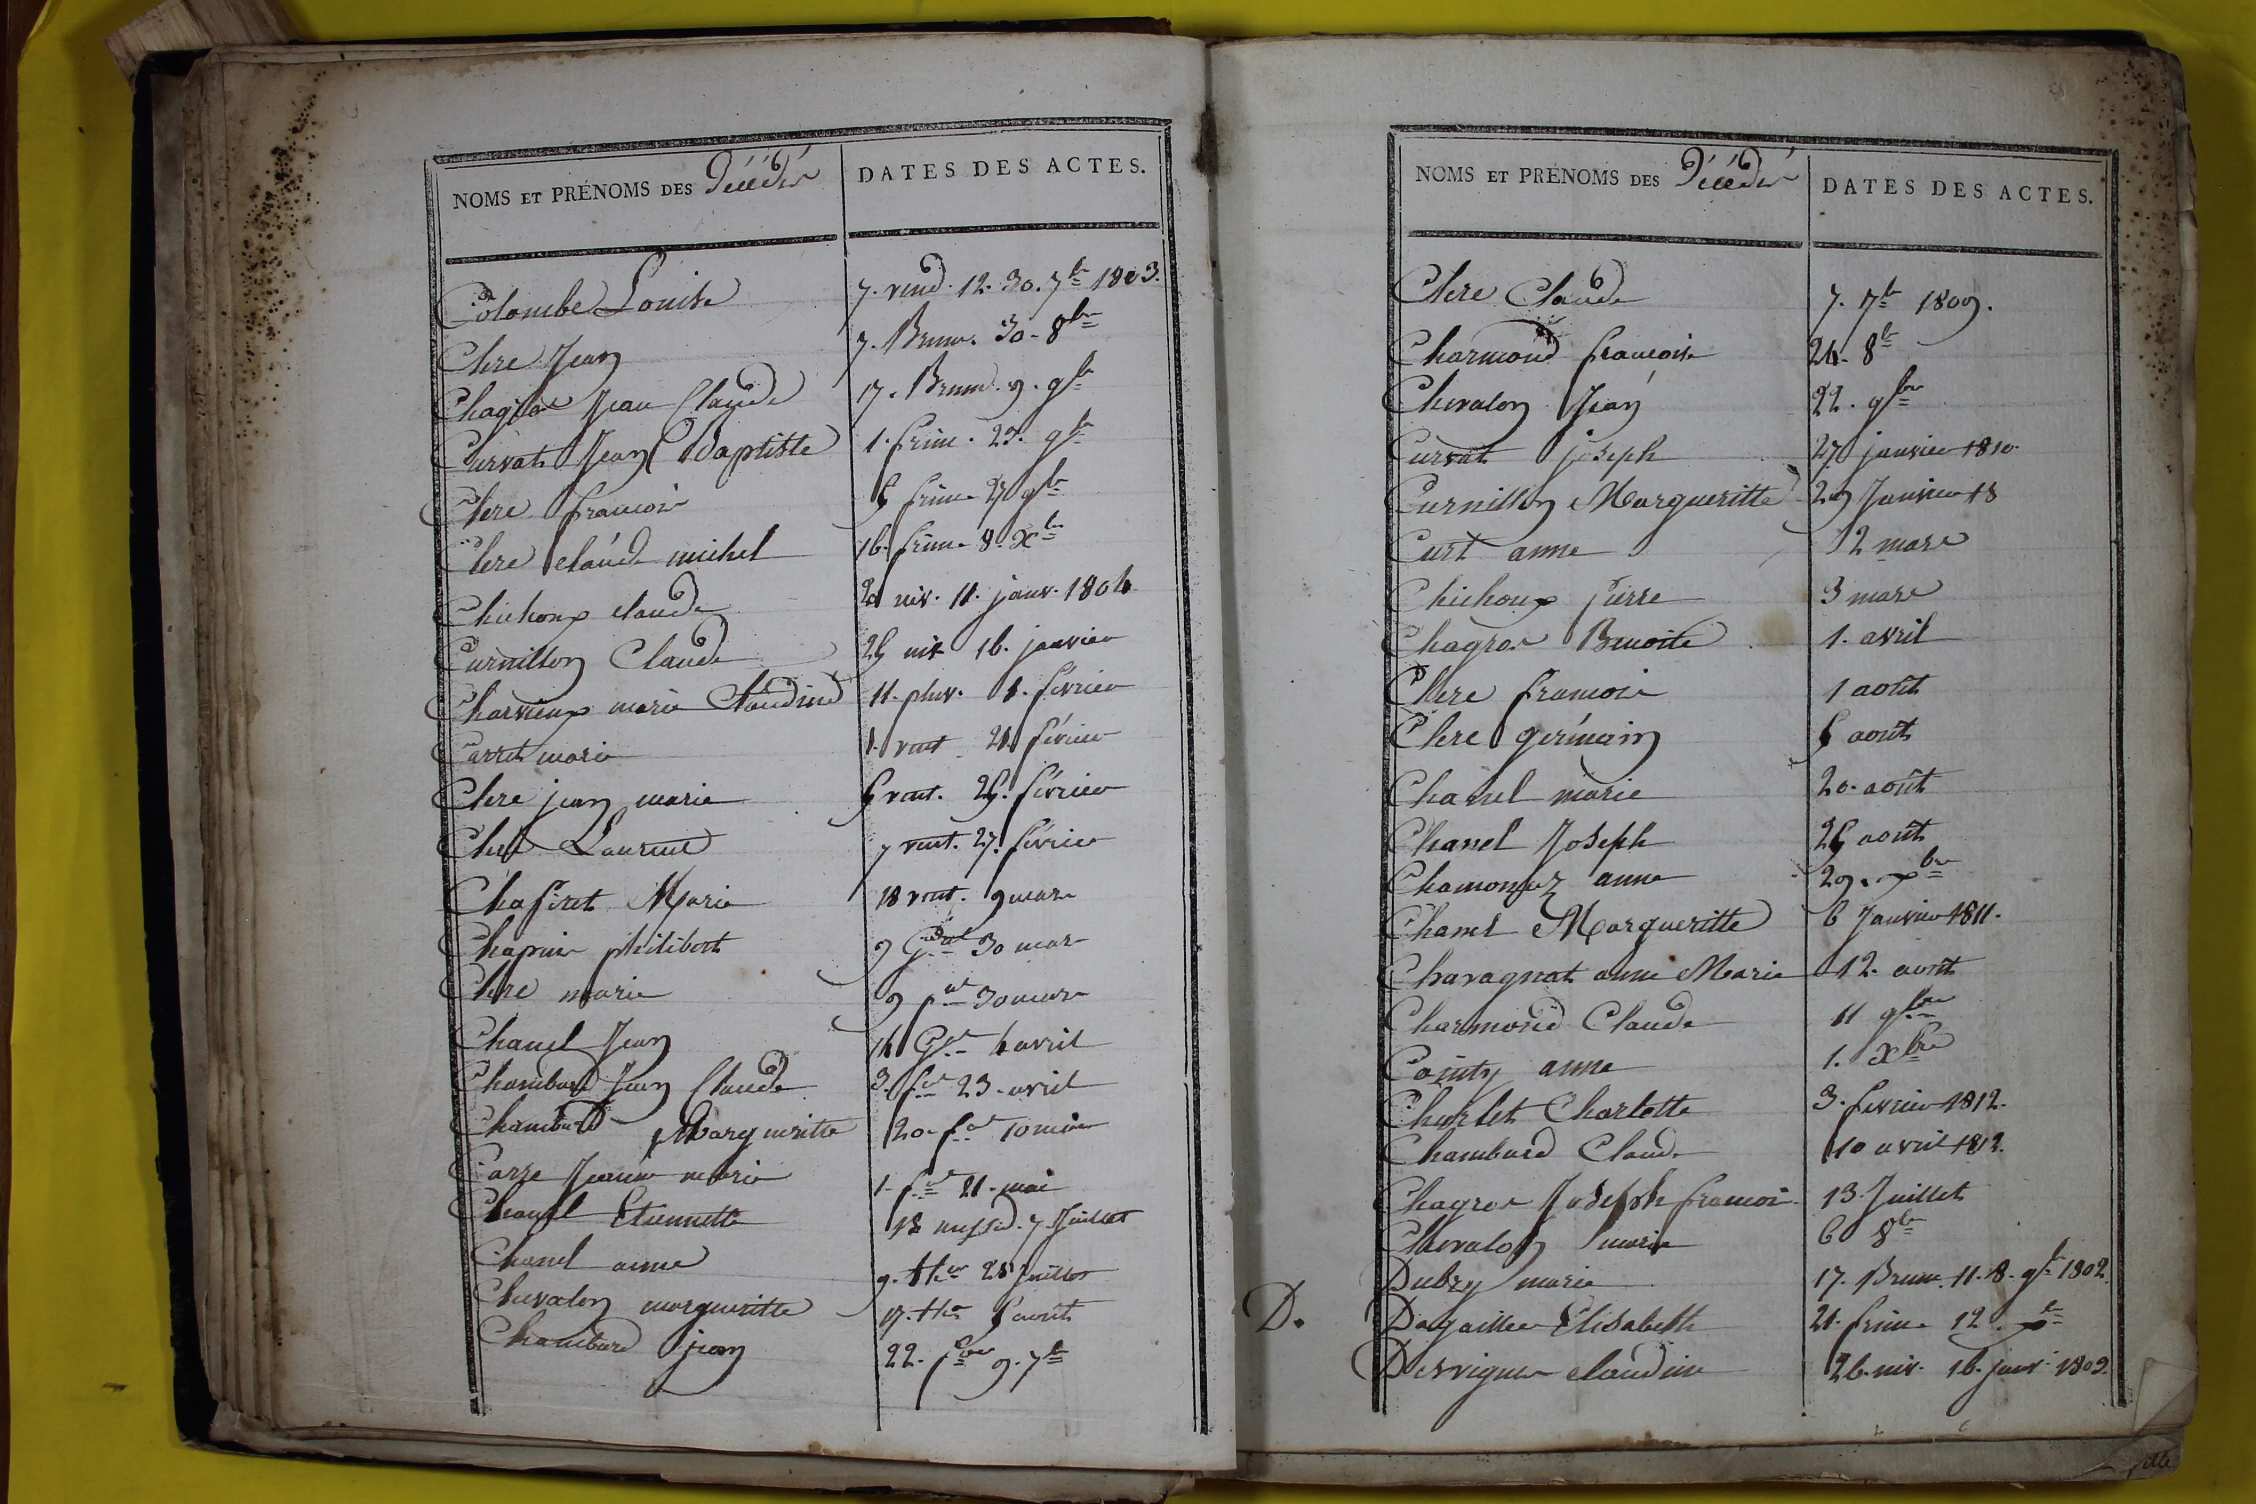 NOMS ET PRÉNOMS DES Décédés DATES DES ACTES.
Colombe Louise 7. vend. 12. 30. 7bre 1803.
Clere Jean 7. Brum. 30. 8bre
Chagros Jean Claude 17. Brum. 9. 9bre
Curvat Jean Baptiste 1. frim. 23. 9bre
Clere francois 5 frim. 27 9bre
Clere claude michel 16. frim. 8. Xbre
Chichoux claude 20 niv. 11. janv. 1804
Curnillon Claude 25 niv. 16. janvier
Charvieux marie Claudine 11. pluv. 1. février
Carret marie 1. vent. 21. février
Clere jean marie 5 vent. 25. février
Clere Laurent 7 vent. 27. février
Marie 18 vent. 9 mars
Chapuis philibert 9 Gal 30 mars
Clere marie 9 gal 30 mars
Chanel Jean 14 Gal 4 avril
Chambard Jean Claude 3. fal 23. avril
Chambard Marguerite 20. fal 10 mai
Carre Jeanne marie 1. 21. mai
Chanel Etiennette 18 messid. 7 Juillet
Chanel anne 9. ther 28 Juillet
Chevalon margueritte 17. ther 5 août
Chambard jean 22. 9. 7bre
NOMS ET PRÉNOMS DES Décédés DATES DES ACTES.
Clere Claude 7. 7bre 1809.
Charmond francoise 24. 8bre
Chevalon Jean 22. 9bre
Curvat joseph 27 janvier 1810.
Curnillon Margueritte 29 Janvier 18
Curt anne 2 mars
Chichoux pierre 3 mars
Chagros Benoite 1. avril
Clere francois 1 août
Clere germain 5 août
Chanel marie 20. août
Chanel Joseph 25 août
anne 29. Xbre
Chanel Margueritte 6 Janvier 1811.
Chavagnat anne Marie 12. août
Charmond Claude 11 9bre
Cointy anne 1. Xbre
Charlet Charlotte 3. fevrier 1812.
Chambard Claude 10 avril 1812.
Chagros Joseph francois 13. Juillet
Chevalon marie 6 8bre
Dubry marie 17. Brum. 11. 8. 9bre 1802.
D. Dagaillier Elisabeth 21. frim. 12. Xbre
Desvignes claudine 26. niv. 16. janv. 1803.